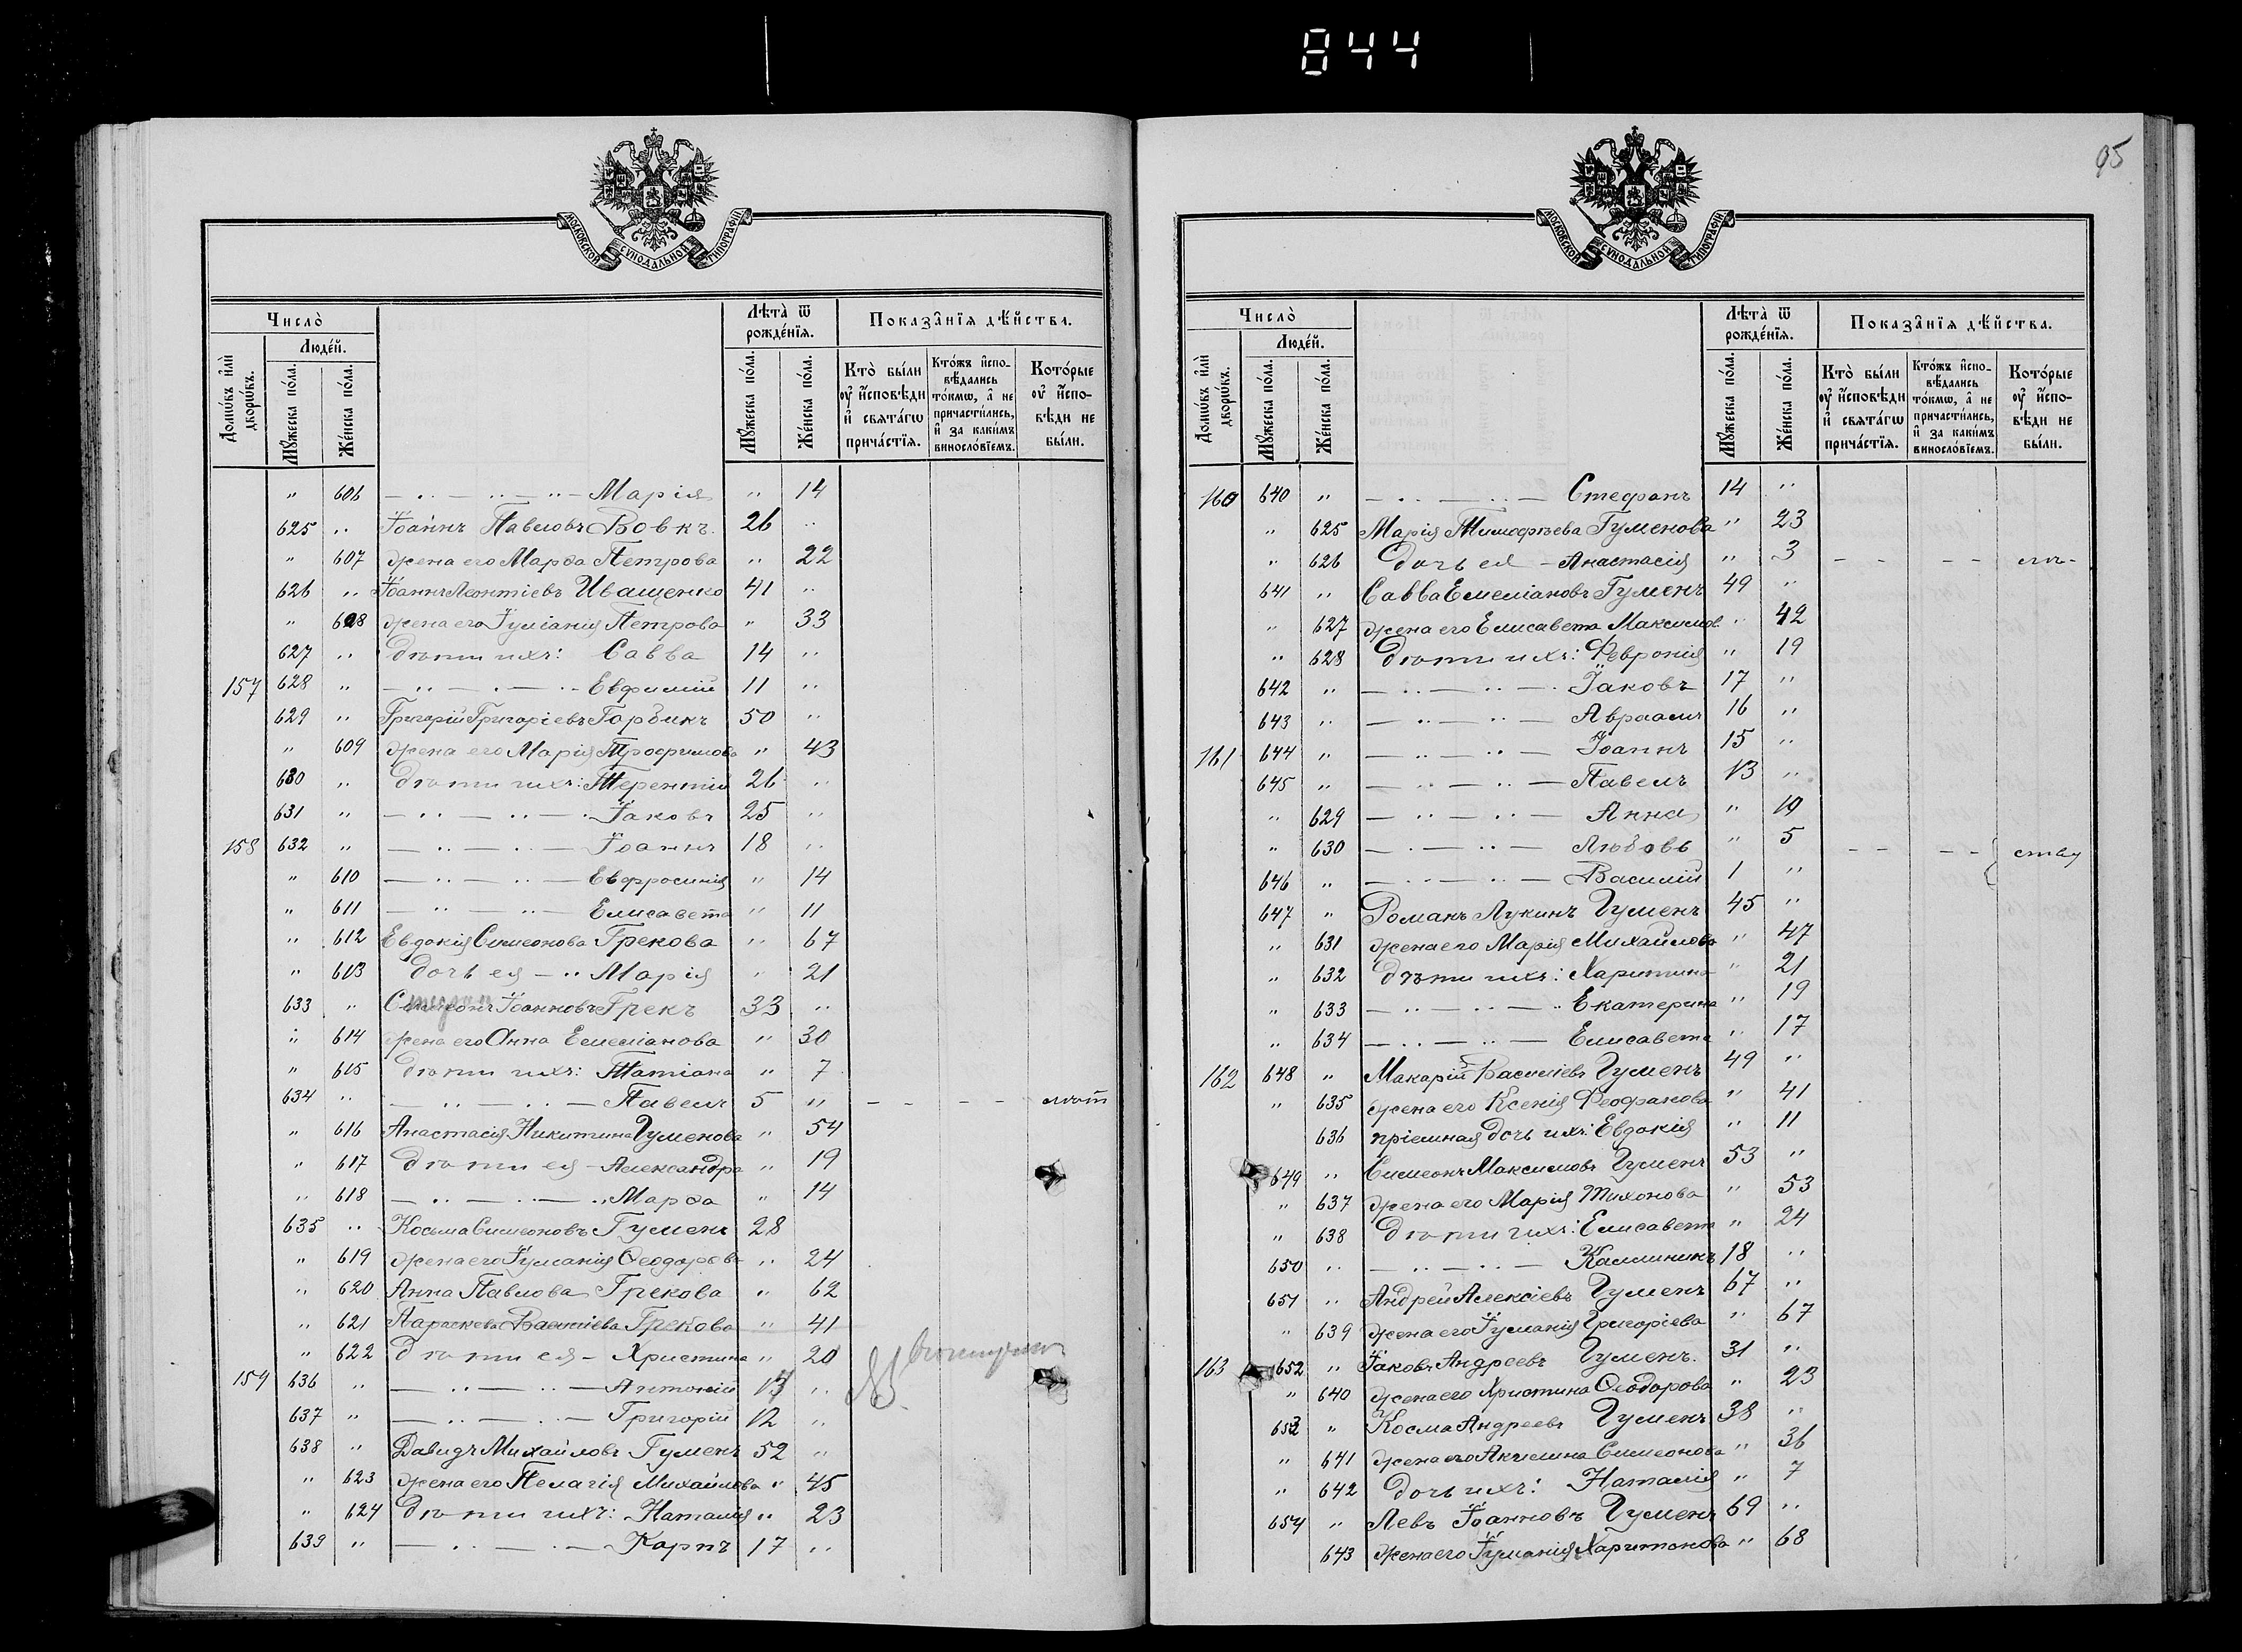 844
МОСКОВСКОЙ СѴНОДАЛЬНОЙ ТИПОГРАФІИ
Число̀
Людей.
Домѡвъ илѝ дворѡвъ.
Мꙋжеска пола.
Женска пола.
Лѣта̀ ѿ рожденїѧ.
Мꙋжеска пола.
Женска пола.
Показанїѧ дѣйства.
Кто̀ были ᲂу҆ исповѣди и҆ свѧтагѡ причастїѧ.
Ктожъ исповѣдались токмѡ, а҆ не причастились, и҆ за какимъ винословїемъ.
Которые ᲂу҆ исповѣди не были.
" 606 — .. — .. — Марія " 14
625 " Іоаннъ Павловъ Вовкъ. 26 "
" 607 жена его Марѳа Петрова " 22
626 " Іоаннъ Леонтіевъ Иващенко 41 "
" 608 жена его Іуліанія Петрова " 33
627 " дѣти ихъ: Савва 14 "
157 628 " — .. — . — Евфимій 11 "
629 " Григорій Григоріевъ Горбикъ 50 "
" 609 жена его Марія Трофимова " 43
630 " дѣти ихъ: Терентій 26 "
631 " — .. — .. — Іаковъ 25 "
158 632 " — .. — .. — Іоаннъ 18 "
" 610 — .. — .. — Евфросинія " 14
" 611 — .. — .. — Елисавета " 11
" 612 Евдокія Симеонова Грекова " 67
" 613 дочь ея — " Марія " 21
633 " Іоанновъ Грекъ 33 "
" 614 жена его Анна Емеліанова " 30
" 615 дѣти ихъ: Татіана " 7
634 " — .. — .. — Павелъ 5 " – – – –
" 616 Анастасія Никитина Гуменова " 54
" 617 дѣти ея – Александра " 19
" 618 — .. — .. — Марѳа " 14
635 " Косьма Симеоновъ Гуменъ 28
" 619 жена его Іуліанія Ѳеодорова " 24
" 620 Анна Павлова Грекова " 62
" 621 Параскева Василіева Грекова " 41
" 622 дѣти ея – Христина " 20
159 636 " — .. — .. — Антоній 13 "
637 " — .. — .. — Григорій 12 "
638 " Давидъ Михайловъ Гуменъ 52 "
" 623 жена его Пелагія Михайлова " 45
" 624 дѣти ихъ: Наталія " 23
639 " — .. — . — Карпъ 17 "
95
МОСКОВСКОЙ СѴНОДАЛЬНОЙ ТИПОГРАФІИ
Число̀
Людей.
Домѡвъ илѝ дворѡвъ.
Мꙋжеска пола.
Женска пола.
Лѣта̀ ѿ рожденїѧ.
Мꙋжеска пола.
Женска пола.
Показанїѧ дѣйства.
Кто̀ были ᲂу҆ исповѣди и҆ свѧтагѡ причастїѧ.
Ктожъ исповѣдались токмѡ, а҆ не причастились, и҆ за какимъ винословїемъ.
Которые ᲂу҆ исповѣди не были.
160 640 " — .. — .. — Стефанъ 14 "
" 625 Марія Тимофѣева Гуменова " 23
" 626 дочь ея – Анастасія " 3 – – – –
641 " Савва Емеліановъ Гуменъ 49 "
" 627 жена его Елисавета Максимов. " 42
" 628 дѣти ихъ: Февронія " 19
642 " — .. — .. — Іаковъ 17 "
643 " — .. — .. — Авраамъ 16 "
161 644 " — .. — .. — Іоаннъ 15 "
645 " — .. — .. — Павелъ 13 "
" 629 — .. — .. — Анна " 10
" 630 — . — .. — Любовь " 5 – – – –
646 " — .. — .. — Василій 1 "
647 " Романъ Лукинъ Гуменъ 45 "
" 631 жена его Марія Михайлова " 47
" 632 дѣти ихъ: Харитина " 21
" 633 — .. — .. — Екатерина " 19
" 634 — .. — .. — Елисавета " 17
162 648 " Макарій Василіевъ Гуменъ 49 "
" 635 жена его Ксенія Феофанова " 41
636 пріемная дочь ихъ: Евдокія " 11
649 " Симеонъ Максимовъ Гуменъ 53 "
" 637 жена его Марія Тихонова " 53
" 638 дѣти ихъ: Елисавета " 24
650 " — .. — .. — Каллиникъ 18 "
651 " Андрей Алексіевъ Гуменъ 67 "
" 639 жена его Іуліанія Григоріева " 67
163 652 " Іаковъ Андреевъ Гуменъ. 31 "
" 640 жена его Христина Ѳеодорова " 23
653 " Косма Андреевъ Гуменъ 38 "
" 641 жена его Акилина Симеонова " 36
" 642 дочь ихъ: Наталія " 7
654 " Левъ Іоанновъ Гуменъ 69 "
643 жена его Іуліанія Харитонова " 68